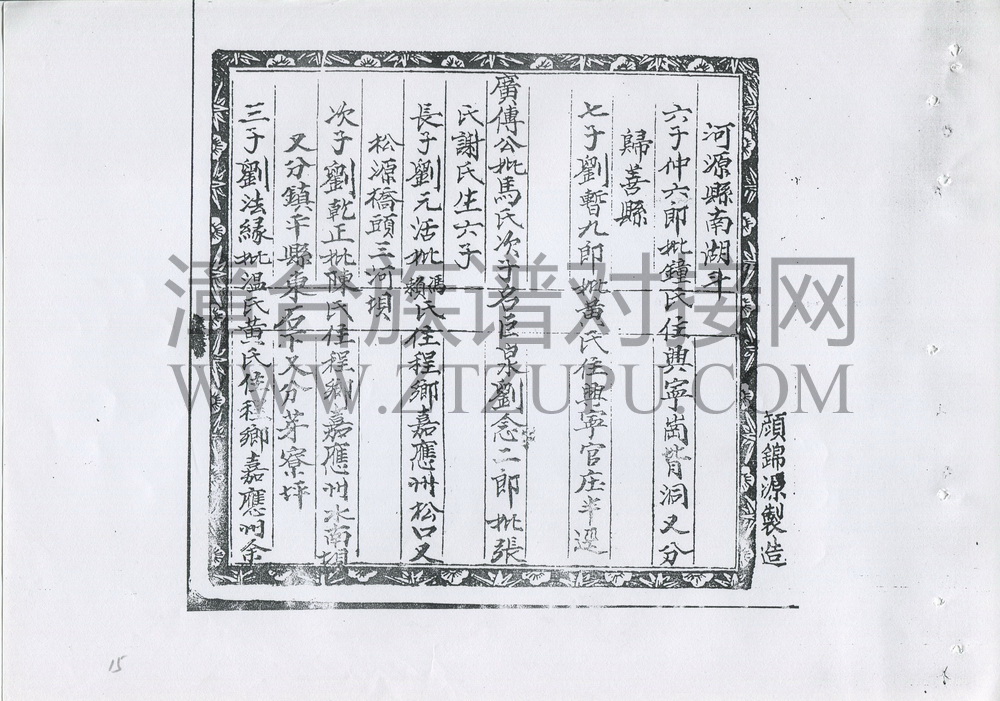 河源縣南湖斗
六子仲六郎妣鐘氏住興寧崗背洞又分
歸善縣
七子劉暫九郎妣黃氏住興寧官庄半逕
廣傳公妣馬氏次子名巨泉劉念二郎妣張
氏謝氏生六子
長子劉元活妣馮賴氏住程鄉嘉應州松口又
松源橋頭三河垻
次子劉乾正妣陳氏住程鄉嘉應州水南垻
又分鎮平縣東石下又分芽寮坪
三子劉法緣妣温氏黃氏住程鄉嘉應州余
顔錦源製造
滇台族谱对接网
WWW.ZTZUPU.COM
15